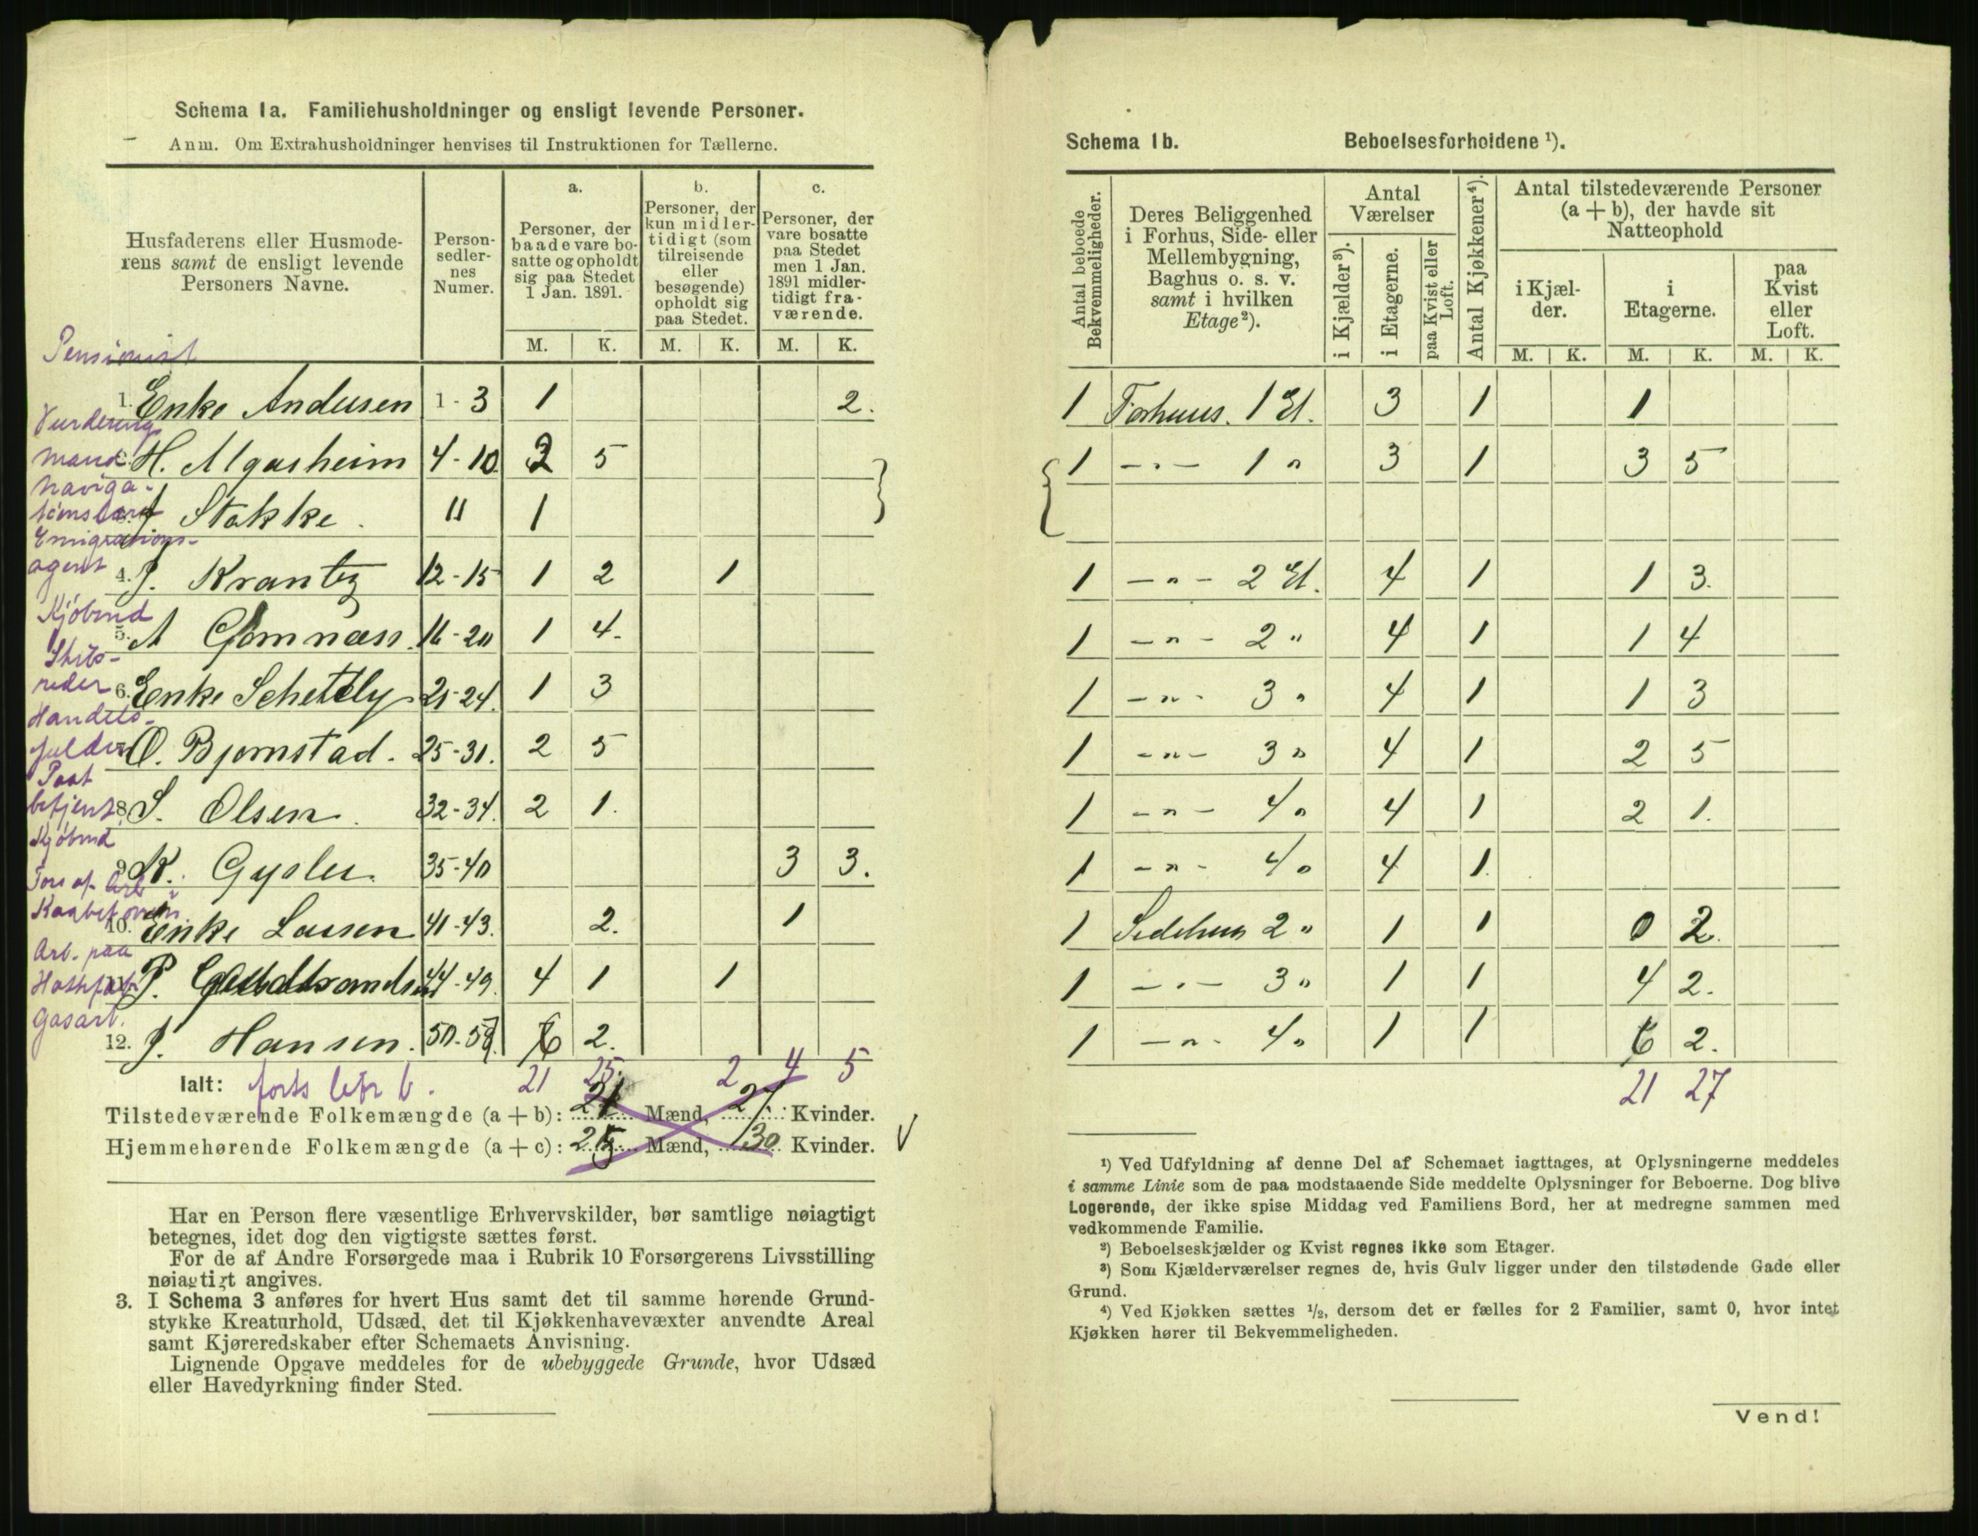 Schema 1a. Familiehusholdninger og ensligt levende Personer.
Anm. Om Extrahusholdninger henvises til Instruktionen for Tællerne.
Husfaderens eller Husmoderens samt de ensligt levende Personers Navne.
Personsedlernes Numer.
a.
Personer, der baade vare bosatte og opholdt sig paa Stedet 1 Jan. 1891.
b.
Personer, der kun midlertidigt (som tilreisende eller besøgende) opholdt sig paa Stedet.
c.
Personer, der vare bosatte paa Stedet men 1 Jan. 1891 midlertidigt fraværende.
M. K. M. K. M. K.
Pensionist
1. Enke Andersen 1-3 1 2.
Vurderingsmand
H. Mgasheim 4-10 3 5
Naviga-
J Stokke. 11 1
Emigrations-
agent 4. J. Krantz 12-15 1 2 1
Kjöbmd
5. A Gomnæss. 16-20 1 4.
Skibs-
reder 6. Enke Schetely 21-24. 1 3
Handels-
O. Bjornstad. 25-31. 2 5
Post
betjent 8 S. Olsen. 32-34. 2 1.
Kjöbmd
9. K. Gysler. 35-40 3 3.
10. Enke Lassen 41-43. 2. 1
Arb. paa
P. Guldbrandsen 44-49. 4 1 1
Gasarb.
12. J. Hansen. 50-57. 6 2.
Ialt: 21 25. 2 4 5
Tilstedeværende Folkemængde (a + b): 21 Mænd, 27 Kvinder.
Hjemmehørende Folkemængde (a + c): 25 Mænd, 30 Kvinder. V
Har en Person flere væsentlige Erhvervskilder, bør samtlige nøiagtigt
betegnes, idet dog den vigtigste sættes først.
For de af Andre Forsørgede maa i Rubrik 10 Forsørgerens Livsstilling
nøiagtigt angives.
3. I Schema 3 anføres for hvert Hus samt det til samme hørende Grund-
stykke Kreaturhold, Udsæd, det til Kjøkkenhavevæxter anvendte Areal
samt Kjøreredskaber efter Schemaets Anvisning.
Lignende Opgave meddeles for de ubebyggede Grunde, hvor Udsæd
eller Havedyrkning finder Sted.
Schema 1b. Beboelsesforholdene ¹).
Antal beboede Bekvemmeligheder.
Deres Beliggenhed i Forhus, Side- eller Mellembygning, Baghus o. s. v. samt i hvilken Etage²).
Antal Værelser
i Kjælder³).
i Etagerne.
paa Kvist eller Loft.
Antal Kjøkkener⁴).
Antal tilstedeværende Personer (a + b), der havde sit Natteophold
i Kjælder.
i Etagerne.
paa Kvist eller Loft.
M. K. M. K. M. K.
1 Forhuus. 1 Et. 3 1 1
1 -"- 1 " 3 1 3 5
1 -"- 2 Et. 4 1 1 3.
1 -"- 2 " 4 1 1 4
1 -"- 3 " 4 1 1 3
1 -"- 3 " 4 1 2 5
1 -"- 4 " 4 1 2 1.
1 -"- 4 " 4 1.
1 Sidehus 2 " 1 1 0 2.
1 -"- 3 " 1 1 4 2.
1 -"- 4 " 1 1 6 2.
21 27
¹) Ved Udfyldning af denne Del af Schemaet iagttages, at Oplysningerne meddeles
i samme Linie som de paa modstaaende Side meddelte Oplysninger for Beboerne. Dog blive
Logerende, der ikke spise Middag ved Familiens Bord, her at medregne sammen med
vedkommende Familie.
²) Beboelseskjælder og Kvist regnes ikke som Etager.
³) Som Kjælderværelser regnes de, hvis Gulv ligger under den tilstødende Gade eller
Grund.
⁴) Ved Kjøkken sættes ½, dersom det er fælles for 2 Familier, samt 0, hvor intet
Kjøkken hører til Bekvemmeligheden.
Vend!